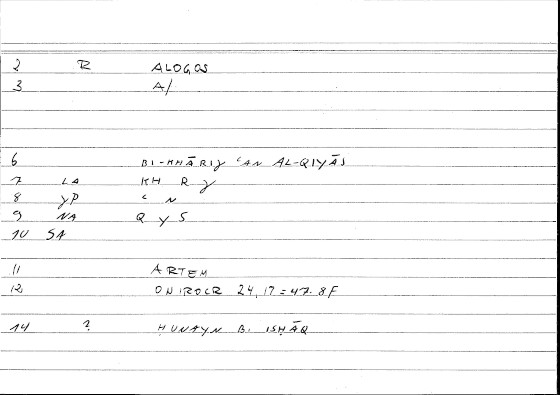 2 R ALOGOS
3 A/
6 BI-KHĀRIJ ʿAN AL-QIYĀS
7 LA KH R J
8 JP ʿ N
9 NA Q Y S
10 SA
11 ARTEM
12 ONIROCR 24,17=47.8F
14 ? ḤUNAYN B. ISḤĀQ